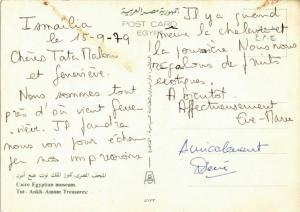 Ismaïlia
le 15-9-79
Chères Tata Malou
et Geneviève.
Nous sommes tout
près d'où vient Gene-
viève. Il faudra
nous voir pour échan-
ger nos impressions
جمهورية مصر العربية
POST CARD
EGYPT
Il y a quand
même la chaleur et
la poussière. Nous nous
régalons de fruits
exotiques.
A bientôt
Affectueusement
Eve-Marie
Amicalement
المتحف المصرى، كنوز الملك توت عنخ آمون
Cairo Egyptian museum.
Tut-Ankh-Amum Treasures: